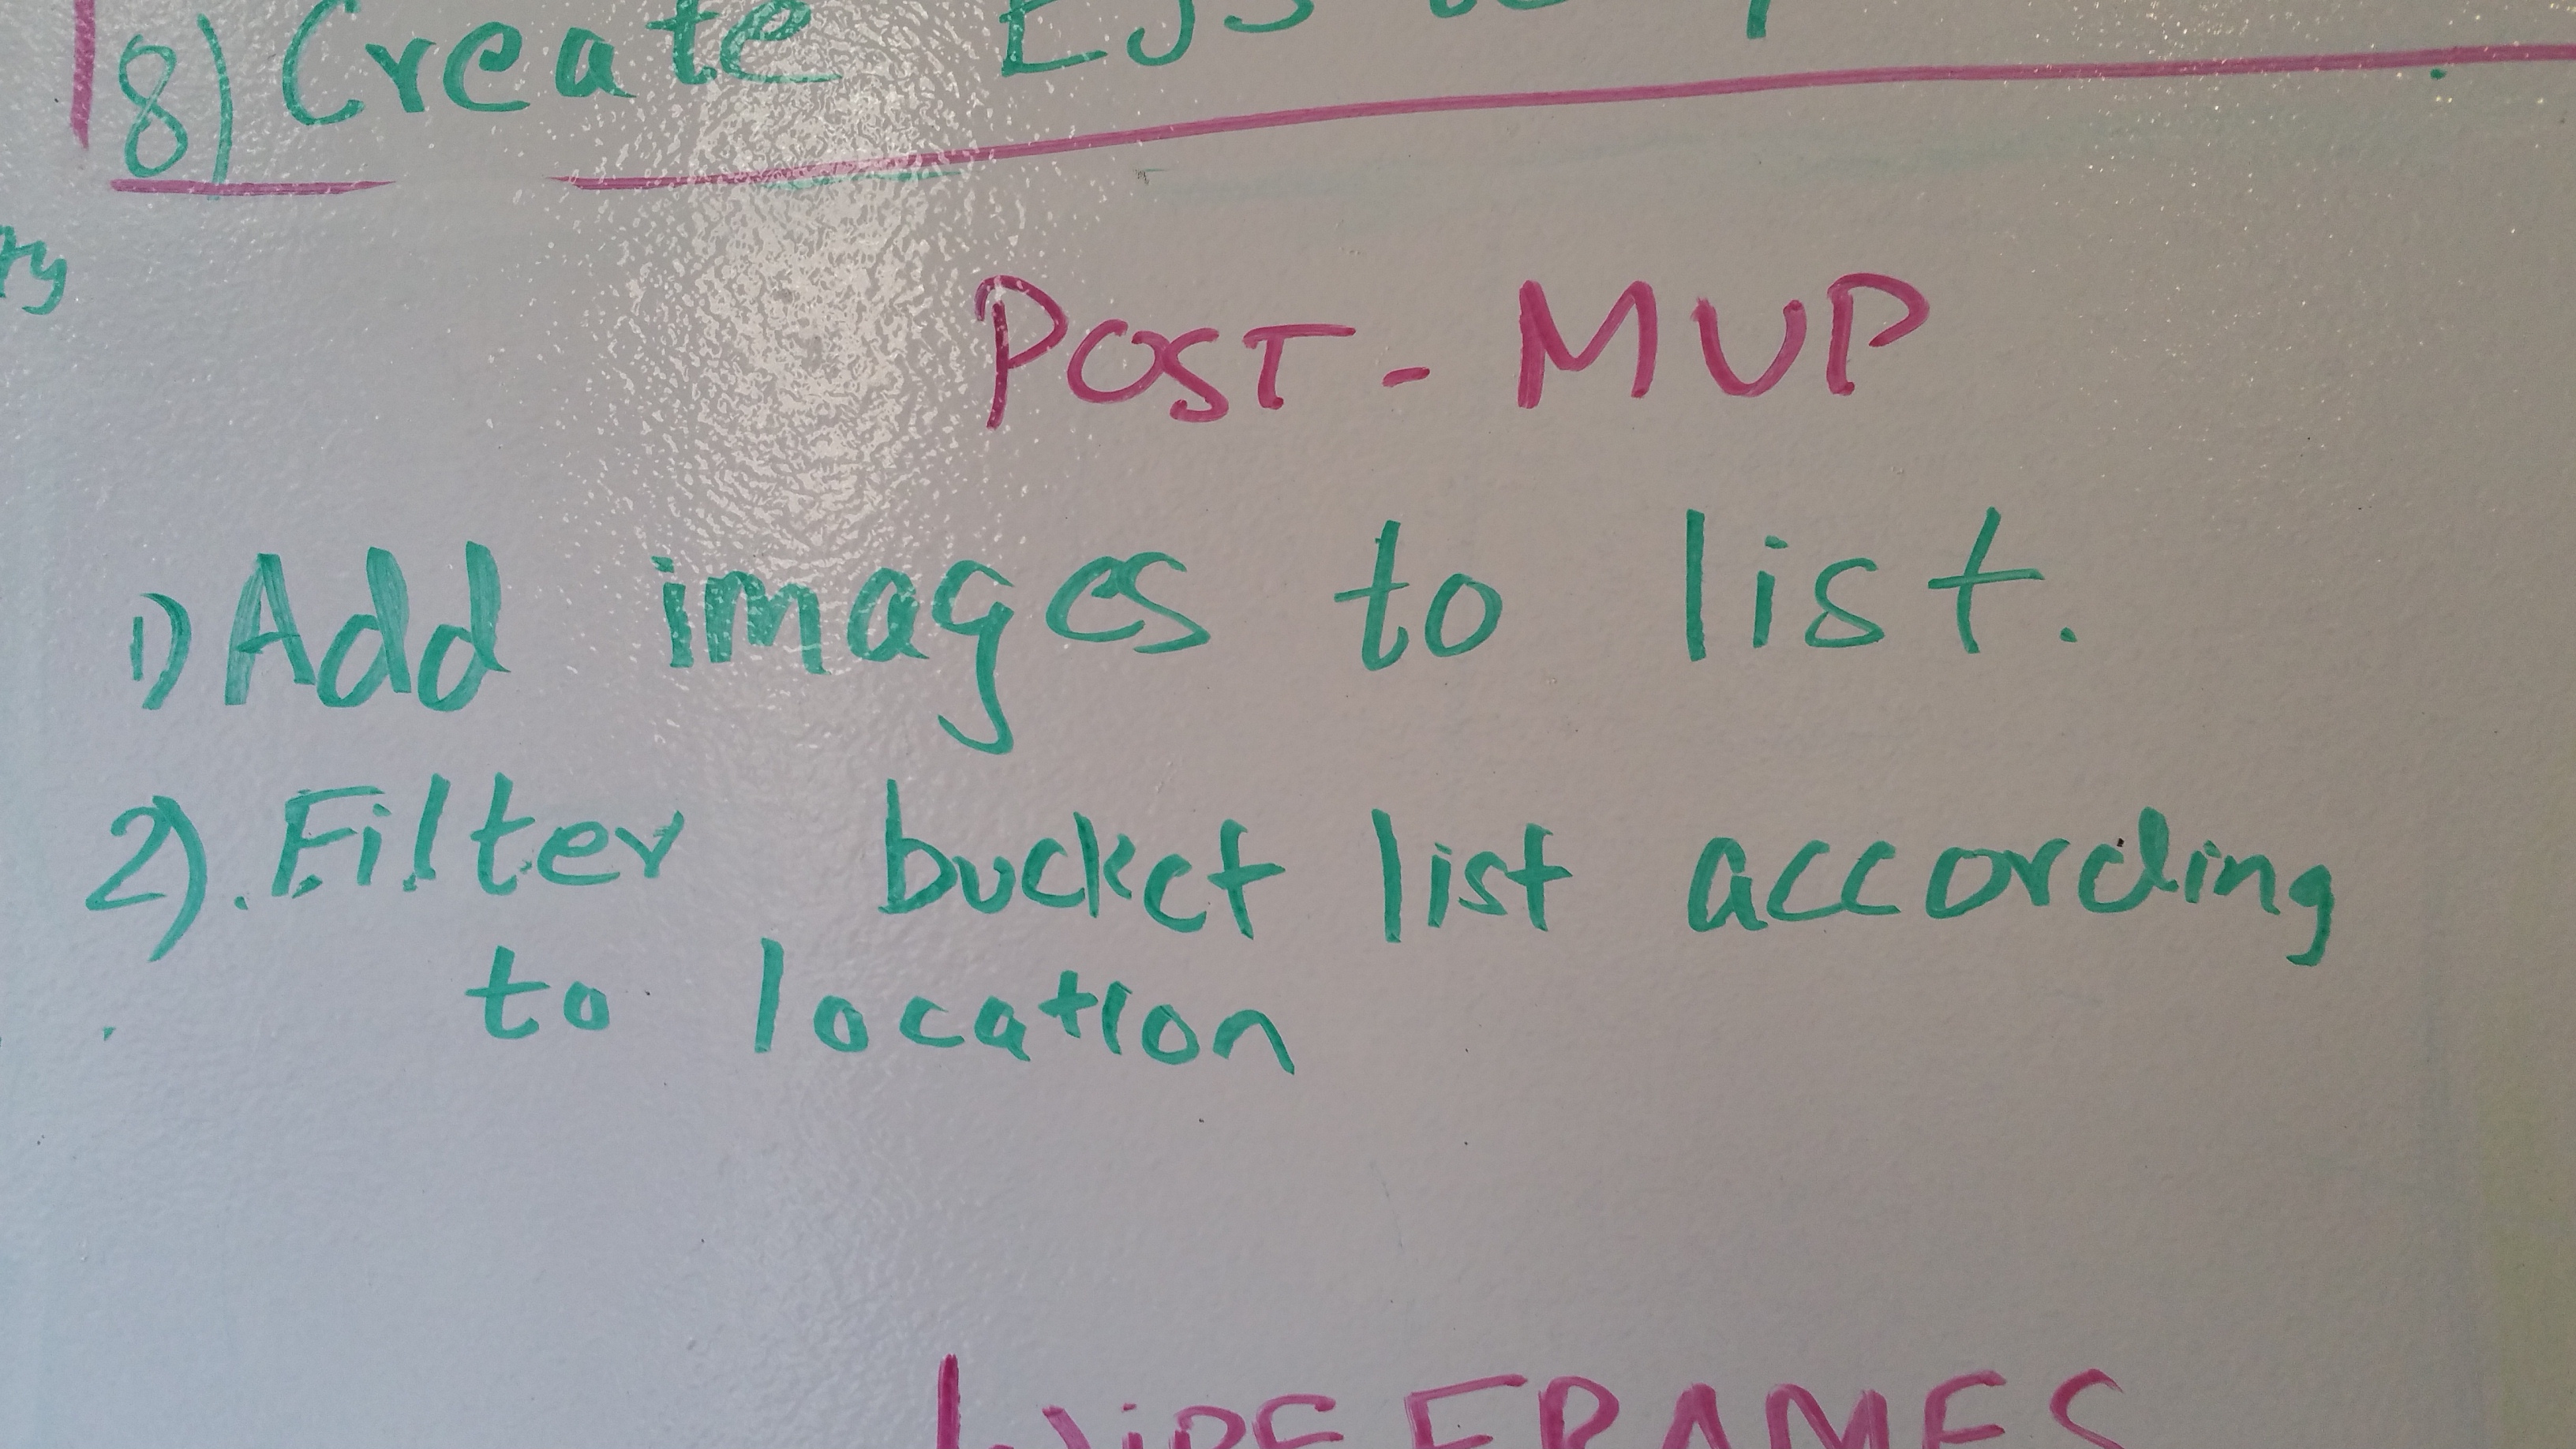 8) Create EJS
POST - MVP
1) Add images to list.
2). Filter bucket list according
to location
WIREFRAMES